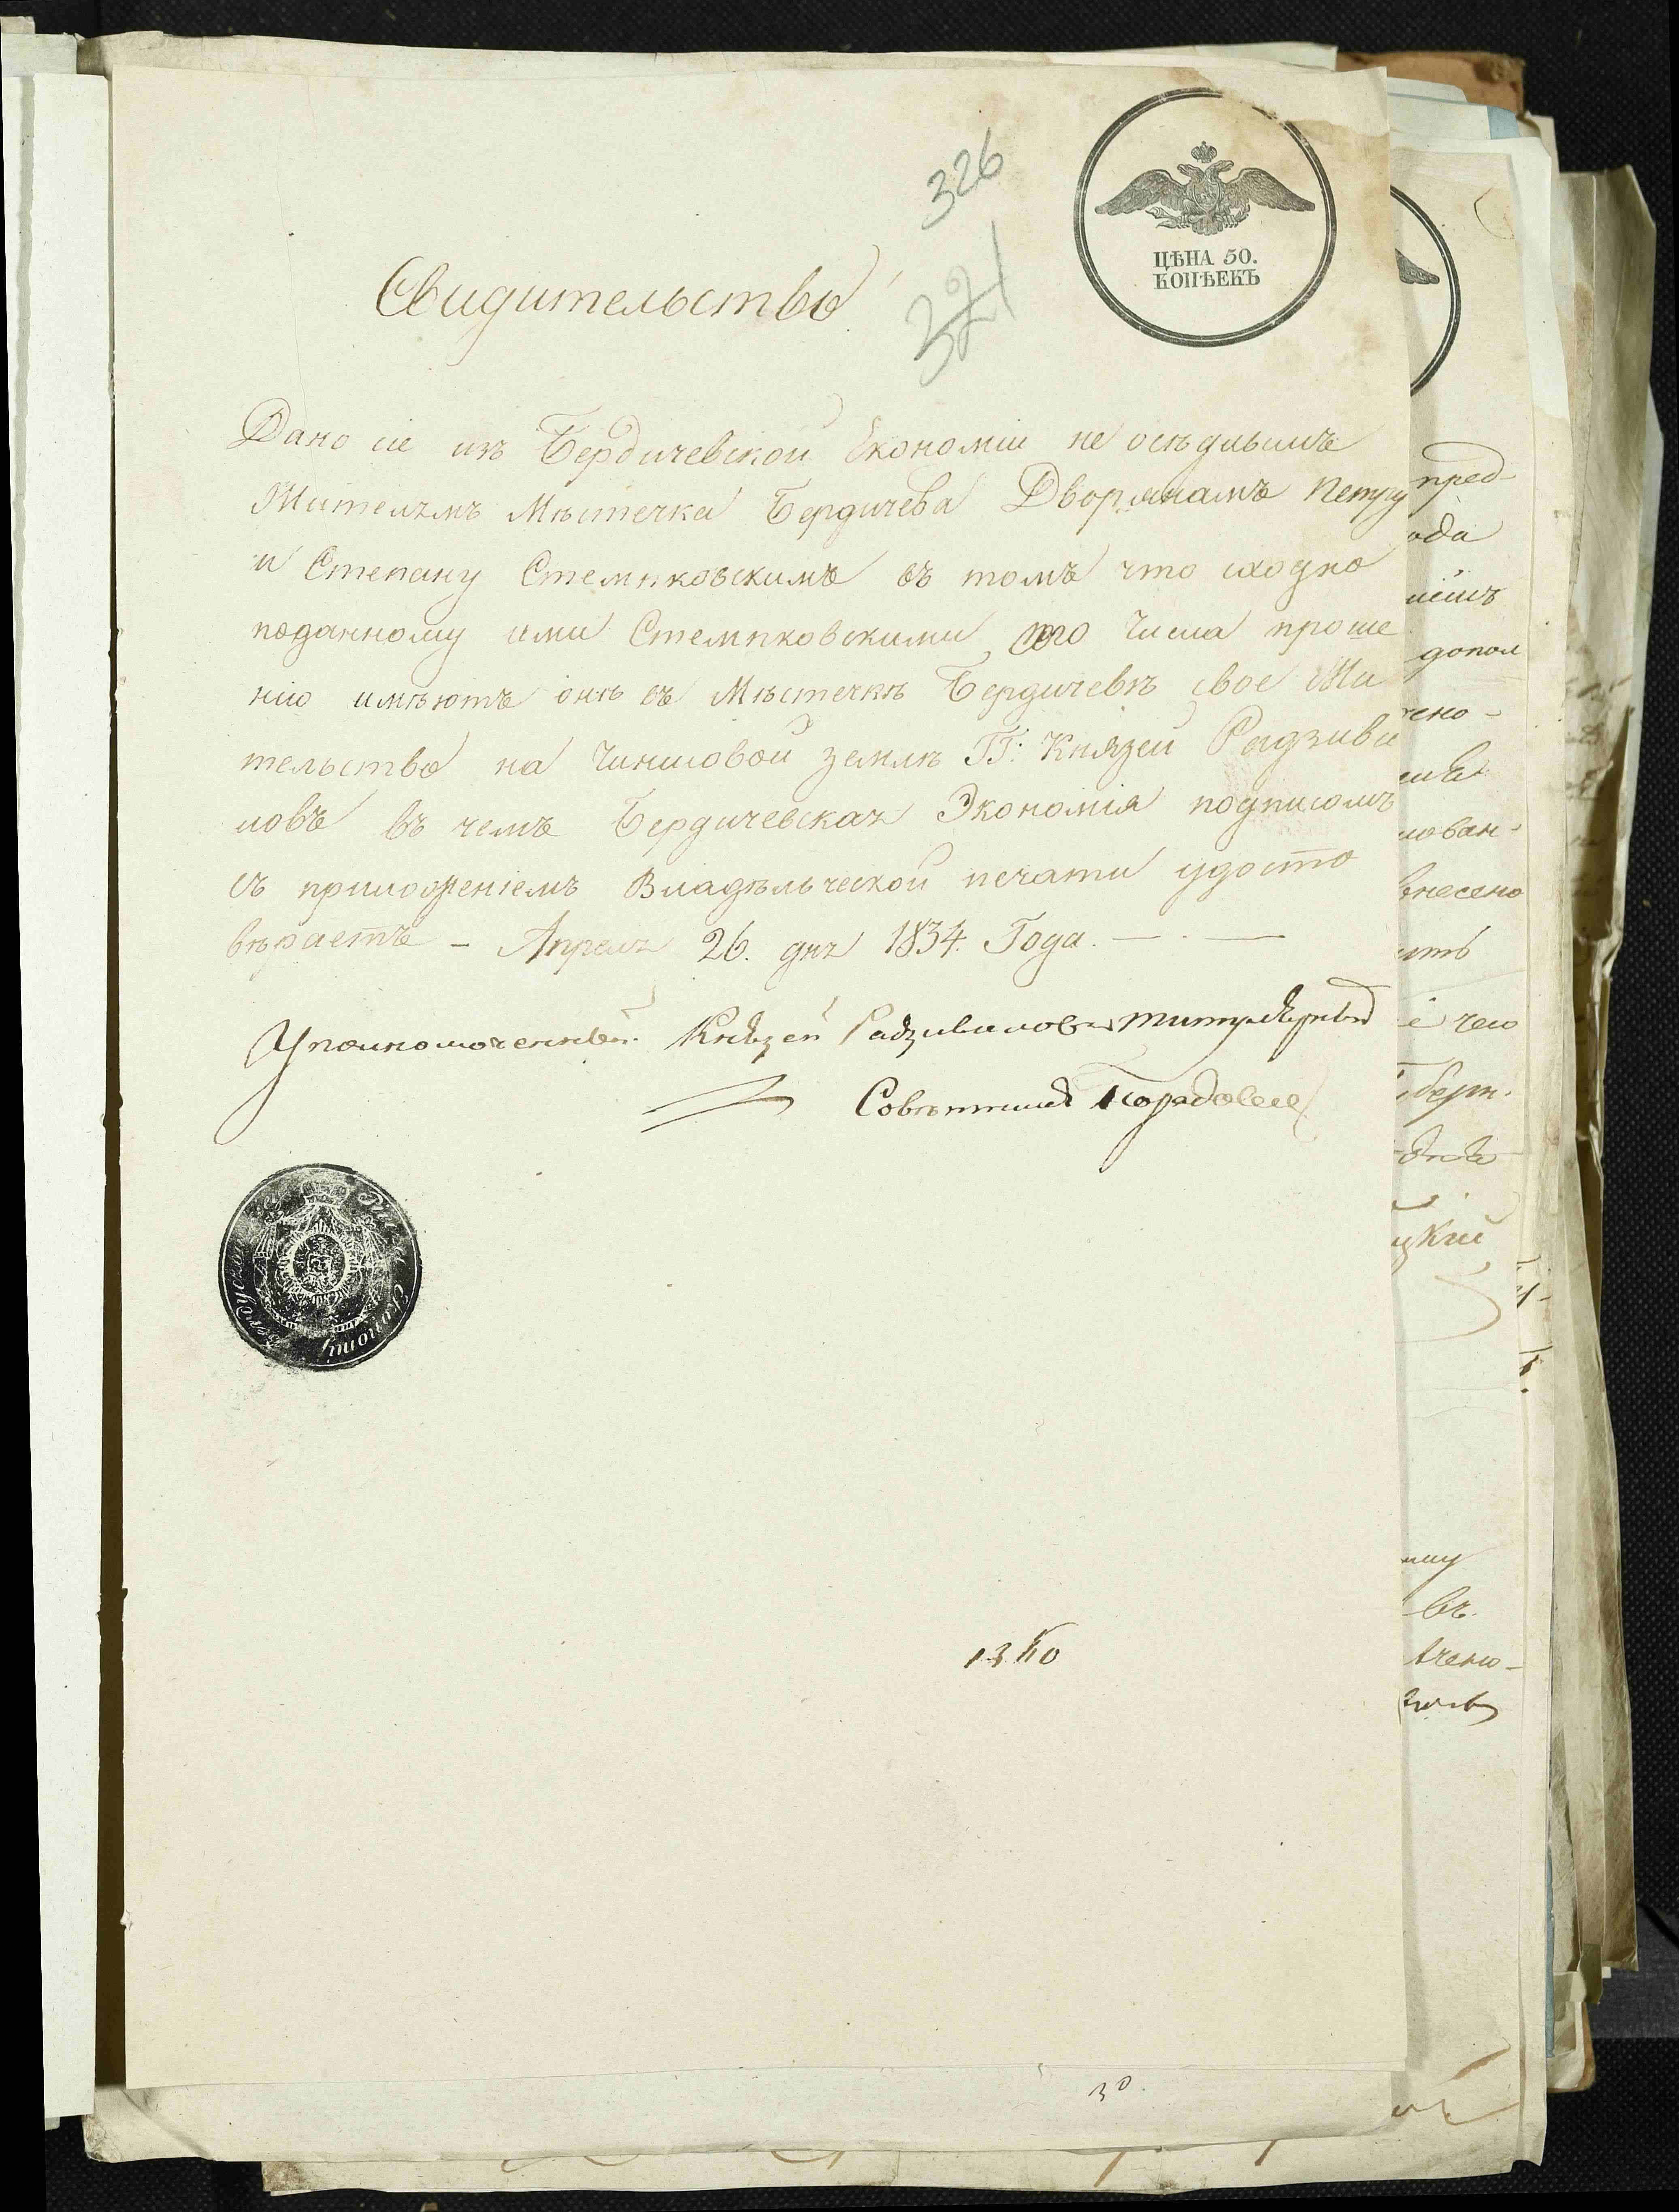 326
321
ЦѢНА 50.
КОПѢЕКЪ
Свидительство
Дано сіе изъ Бердичевской Економіи не осѣдлымъ
Жителямъ Мѣстечка Бердичева Дворянамъ Петру
и Степану Стемпковскимъ въ томъ что сходно
поданному ими Стемпковскими сего Числа проше
нію имѣютъ онѣ въ Мѣстечкѣ Бердичевѣ свое Жи
тельство на Чиншовой землѣ ГГ: Князей Радзиви
ловъ въ чемъ Бердичевская Экономія подписомъ
съ приложеніемъ Владѣльческой печати удосто
вѣряетъ – Апреля 26. дня 1834. Года.
Уполномоченный Князей Радзивиловъ Титулярный
Совѣтникъ
пред-
ода
допол
чено-
лован-
внесено
ить
е чего
Губерн.
цкій
въ
30.